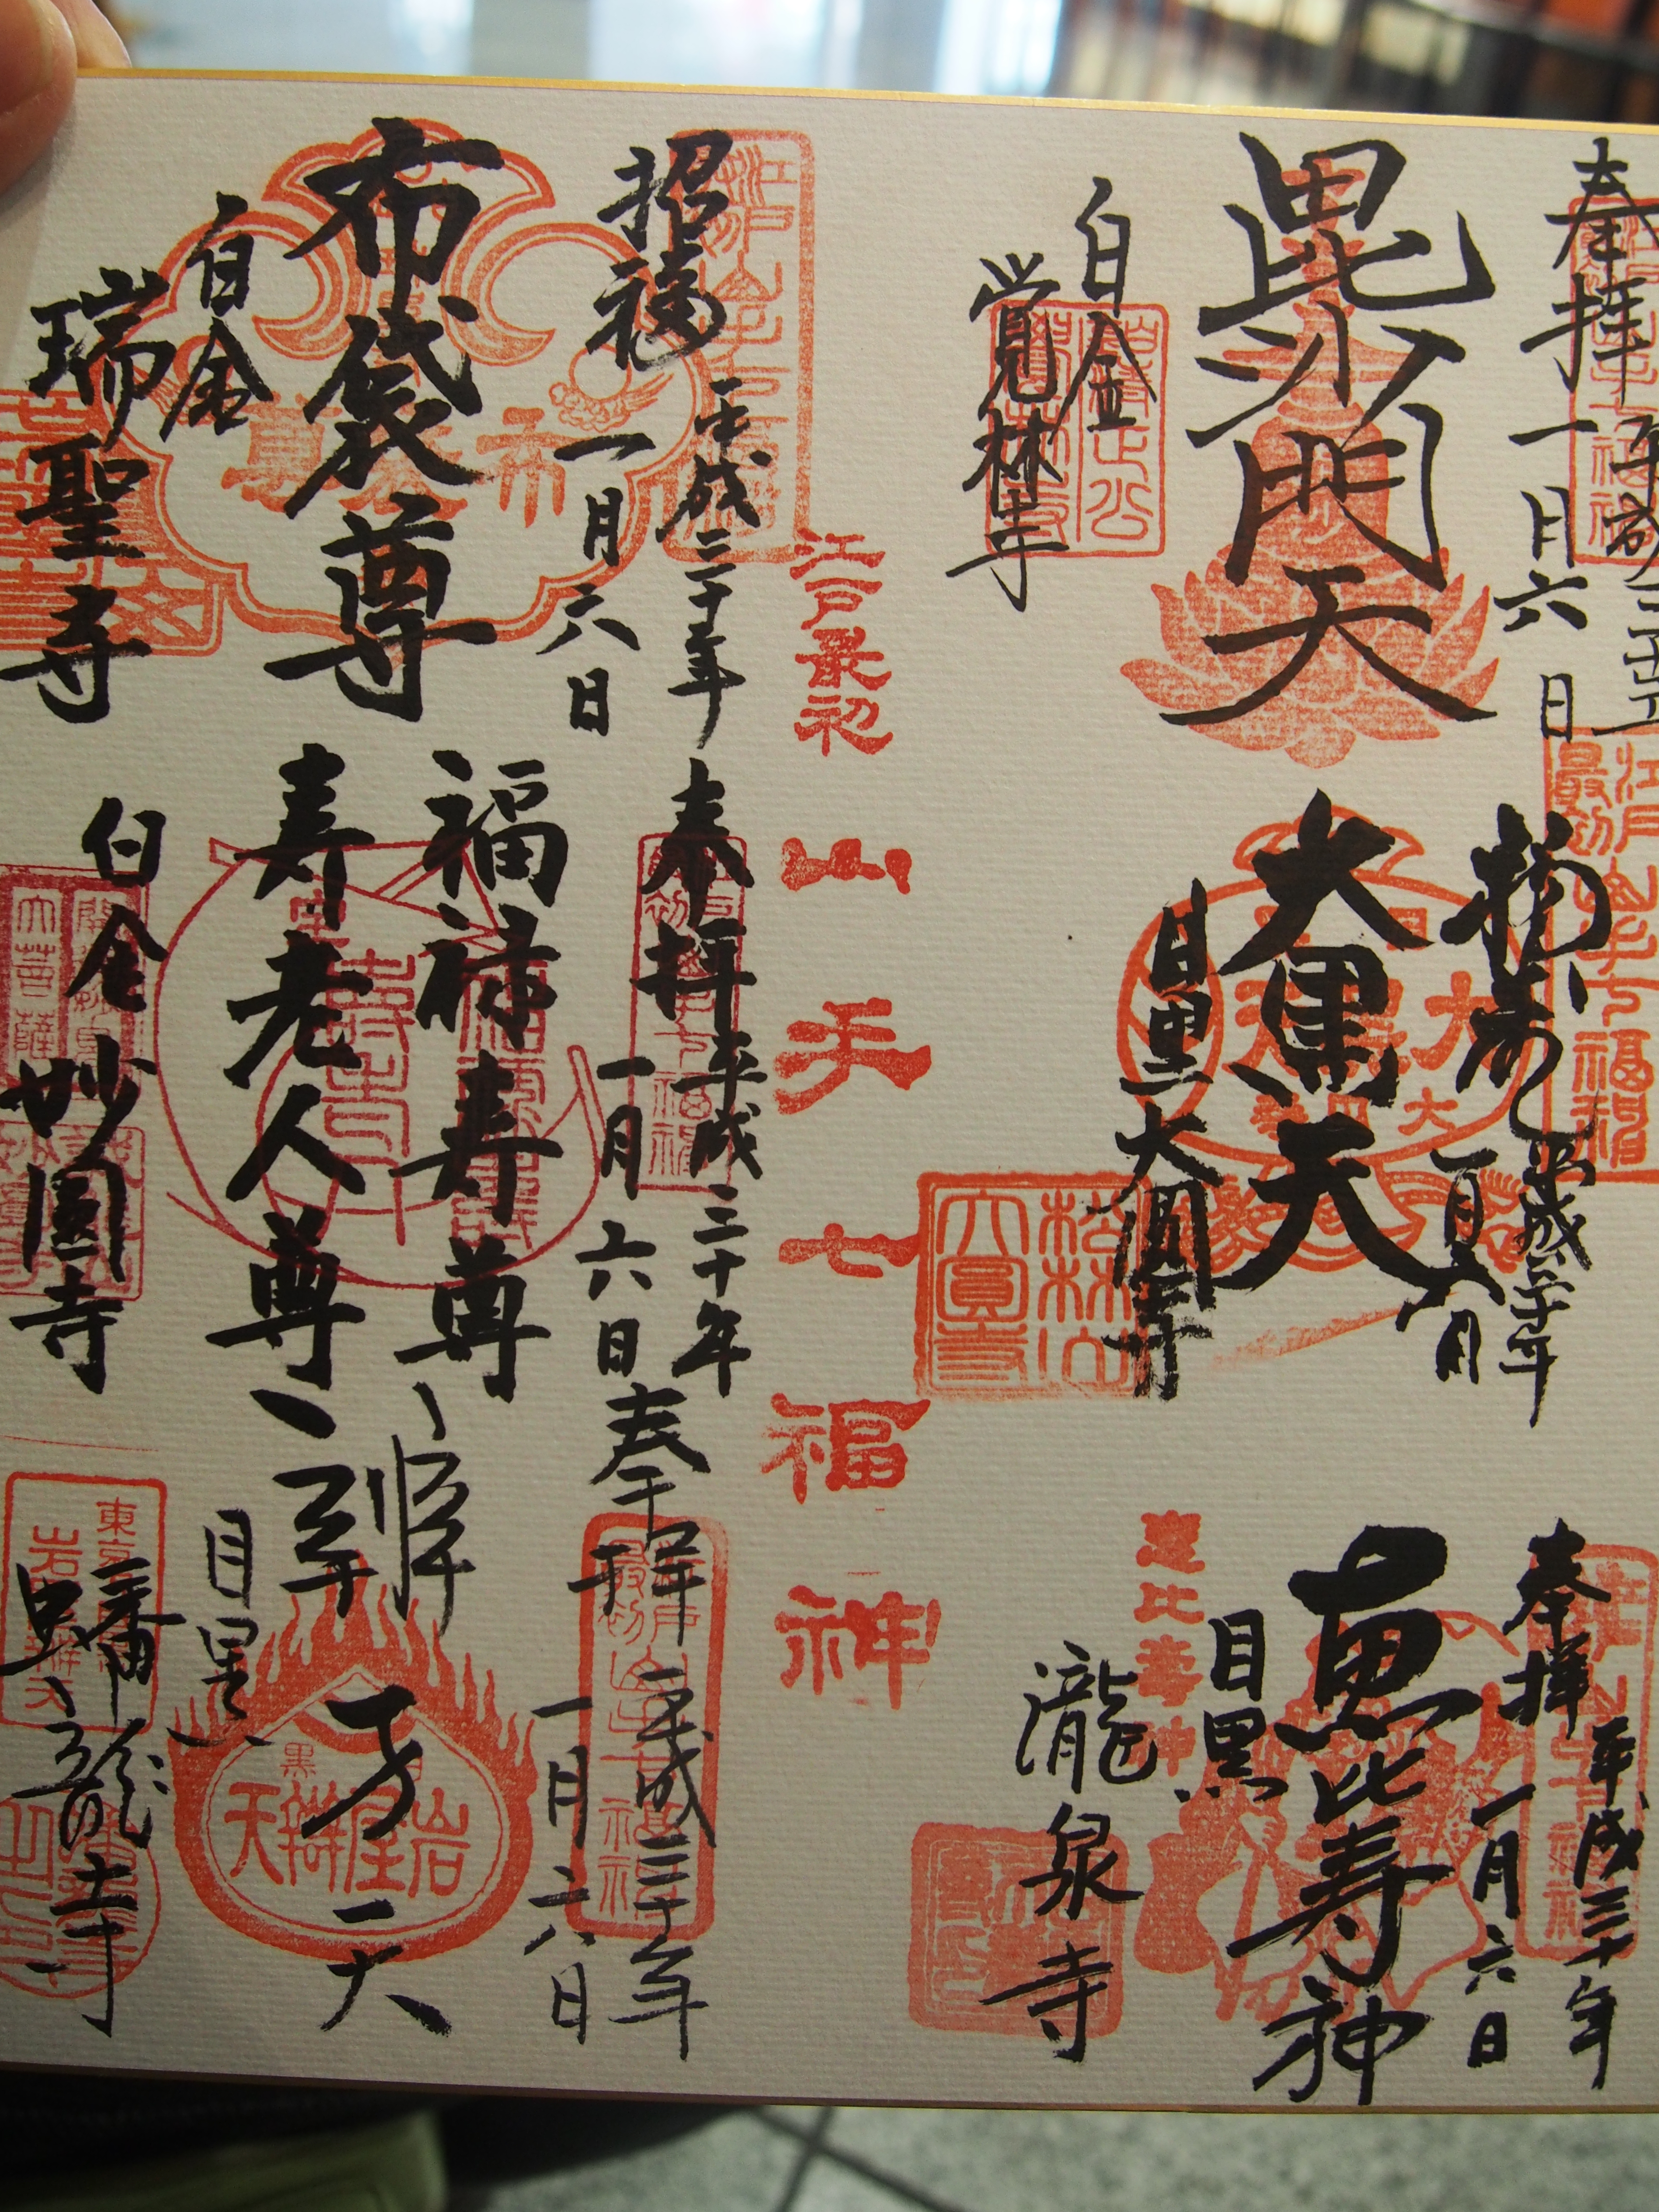 奉拝
平成三十年
一月六日
毘沙門天
白金
覚林寺
平成三十年
一月六日
大黒天
目黒大圓寺
松林山
大圓寺
奉拝
平成三十年
一月六日
恵比寿神
恵比寿神
目黒
瀧泉寺
江戸最初
山手七福神
招福
平成三十年
一月六日
布袋尊
白金
瑞聖寺
奉拝
平成三十年
一月六日
福禄寿尊
寿老人尊
白金
妙圓寺
奉拝
平成三十年
一月六日
辨
天
岩屋辨天
目黒
蟠龍寺
江戸最初山手七福神